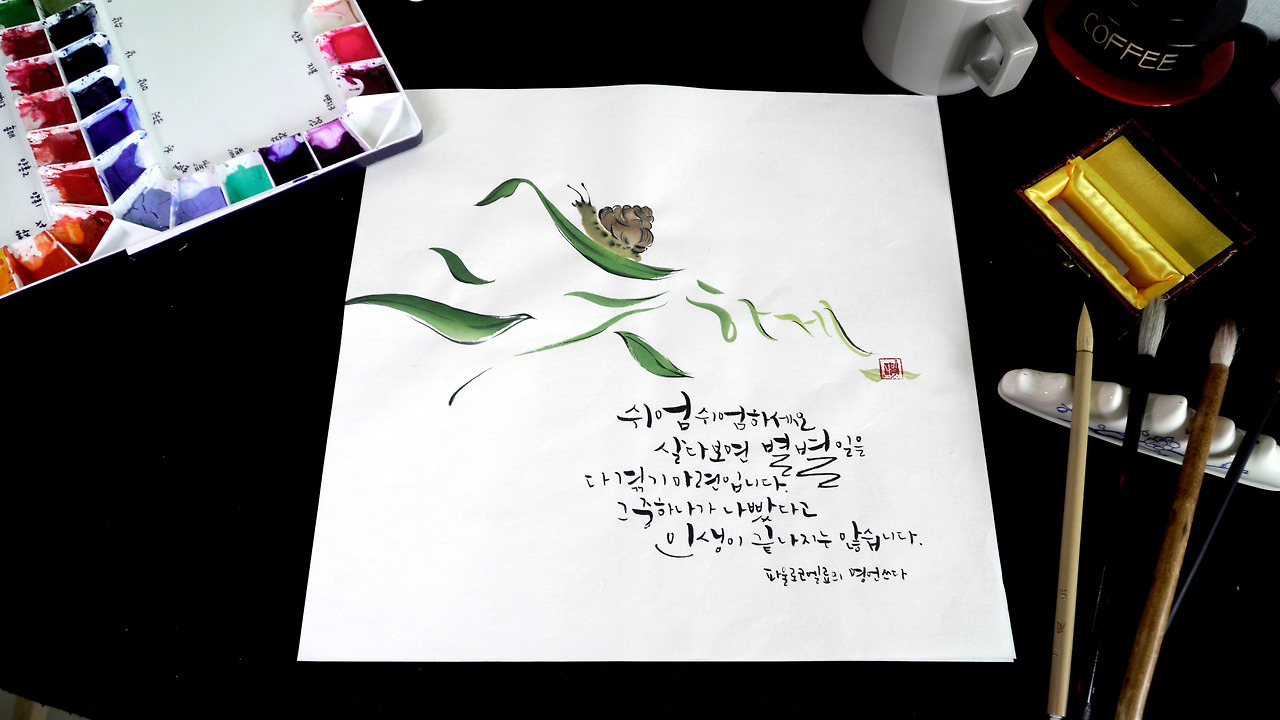 COFFEE
하게
쉬엄쉬엄하세요
살다보면 별별일을
다 겪기 마련입니다.
그중하나가 나빴다고
인생이 끝나지는 않습니다.
파울로코엘료의 명언쓰다